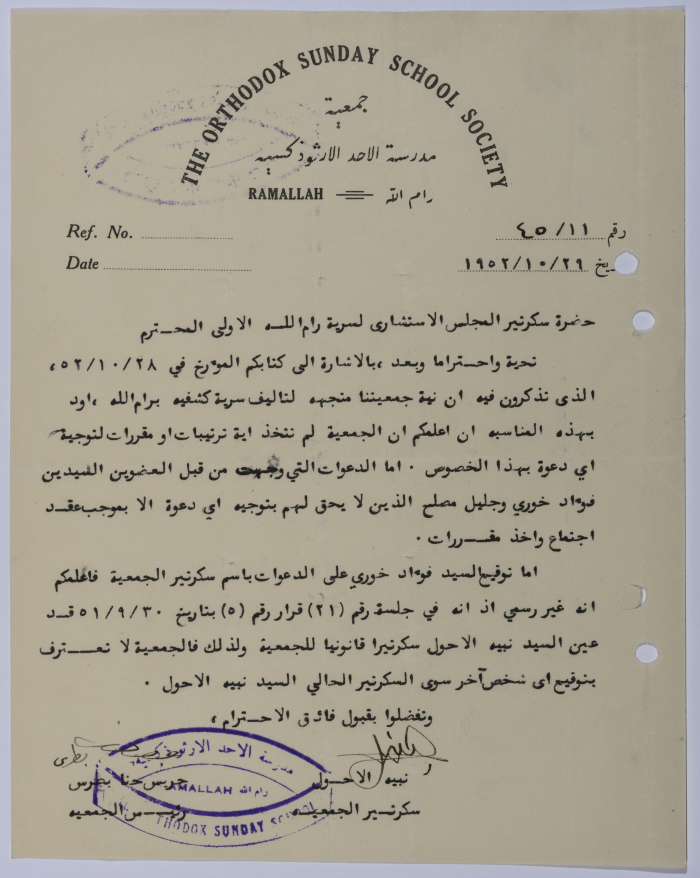 THE ORTHODOX SUNDAY SCHOOL SOCIETY
جمعية
مدرسة الاحد الارثوذكسيه
RAMALLAH رام الله
Ref. No. رقم ٤٥/١١
Date يخ ١٩٥٢/١٠/٢٩
حضرة سكرتير المجلس الاستشارى لسرية رام اللـه الاولى المحـترم
تحية واحـتراما وبعد ،بالاشارة الى كتابكم المؤرخ في ٥٢/١٠/٢٨،
الذى تذكرون فيه ان نية جمعيتنا متجهه لتاليف سرية كشفيه برام الله ،اود
بهذه المناسبه ان اعلمكم ان الجمعية لم تتخذ اية ترتيبات او مقررات لتوجية
اي دعوة بهذا الخصوص . اما الدعوات التي وجهت من قبل العضوين السيدين
فؤاد خوري وجليل مصلح الذين لا يحق لهم بتوجيه اي دعوة الا بموجب عقـد
اجتماع واخذ مقـررات .
اما توقيع السيد فؤاد خوري على الدعوات باسم سكرتير الجمعية فاعلمكم
انه غير رسمي اذ انه في جلسة رقم (٢١) قرار رقم (٥) بتاريخ ٥١/٩/٣٠ قـد
عين السيد نبيه الاحول سكرتيرا قانونيا للجمعية ولذلك فالجمعية لا تعـترف
بتوقيع اى شخص آخر سوى السكرتير الحالي السيد نبيه الاحول .
وتفضلوا بقبول فائق الاحـترام ،
نبيه الاحـول
سكرتـير الجمعيـه
جريس حنا بطرس
رئيـس الجمعيه
مدرسة الاحد الارثوذكسيه
RAMALLAH رام الله
THODOX SUNDAY SCHOOL